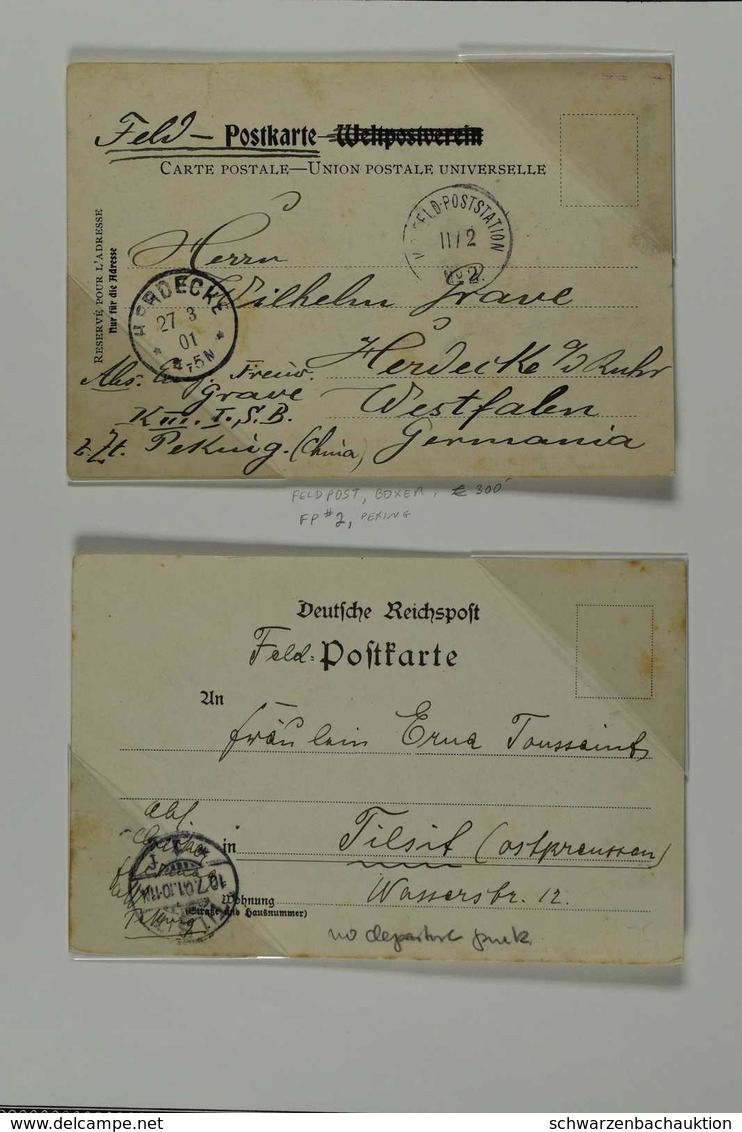 Feld - Postkarte - Weltpostverein
CARTE POSTALE—UNION POSTALE UNIVERSELLE
RESERVÉ POUR L'ADRESSE
Nur für die Adresse
FELD-POSTSTATION
11/2
No 2.
Herrn
Wilhelm Grave
HERDECKE
27 3
01
Herdecke a/d Ruhr
Abs. Freiw.
Grave
Westfalen
K III. I. S. B.
z. Zt. Peking. (China)
Germania
FELDPOST, BOXER, € 300
FP #2, PEKING
Deutsche Reichspost
Feld-Postkarte
An
Fräulein Erna Toussaint
Abs.
in Tilsit (Ostpreussen)
10.7.01.10-11
Wohnung Wasserstr. 12.
(Straße und Hausnummer)
Peking
no departure pmk.
schwarzenbachauktion